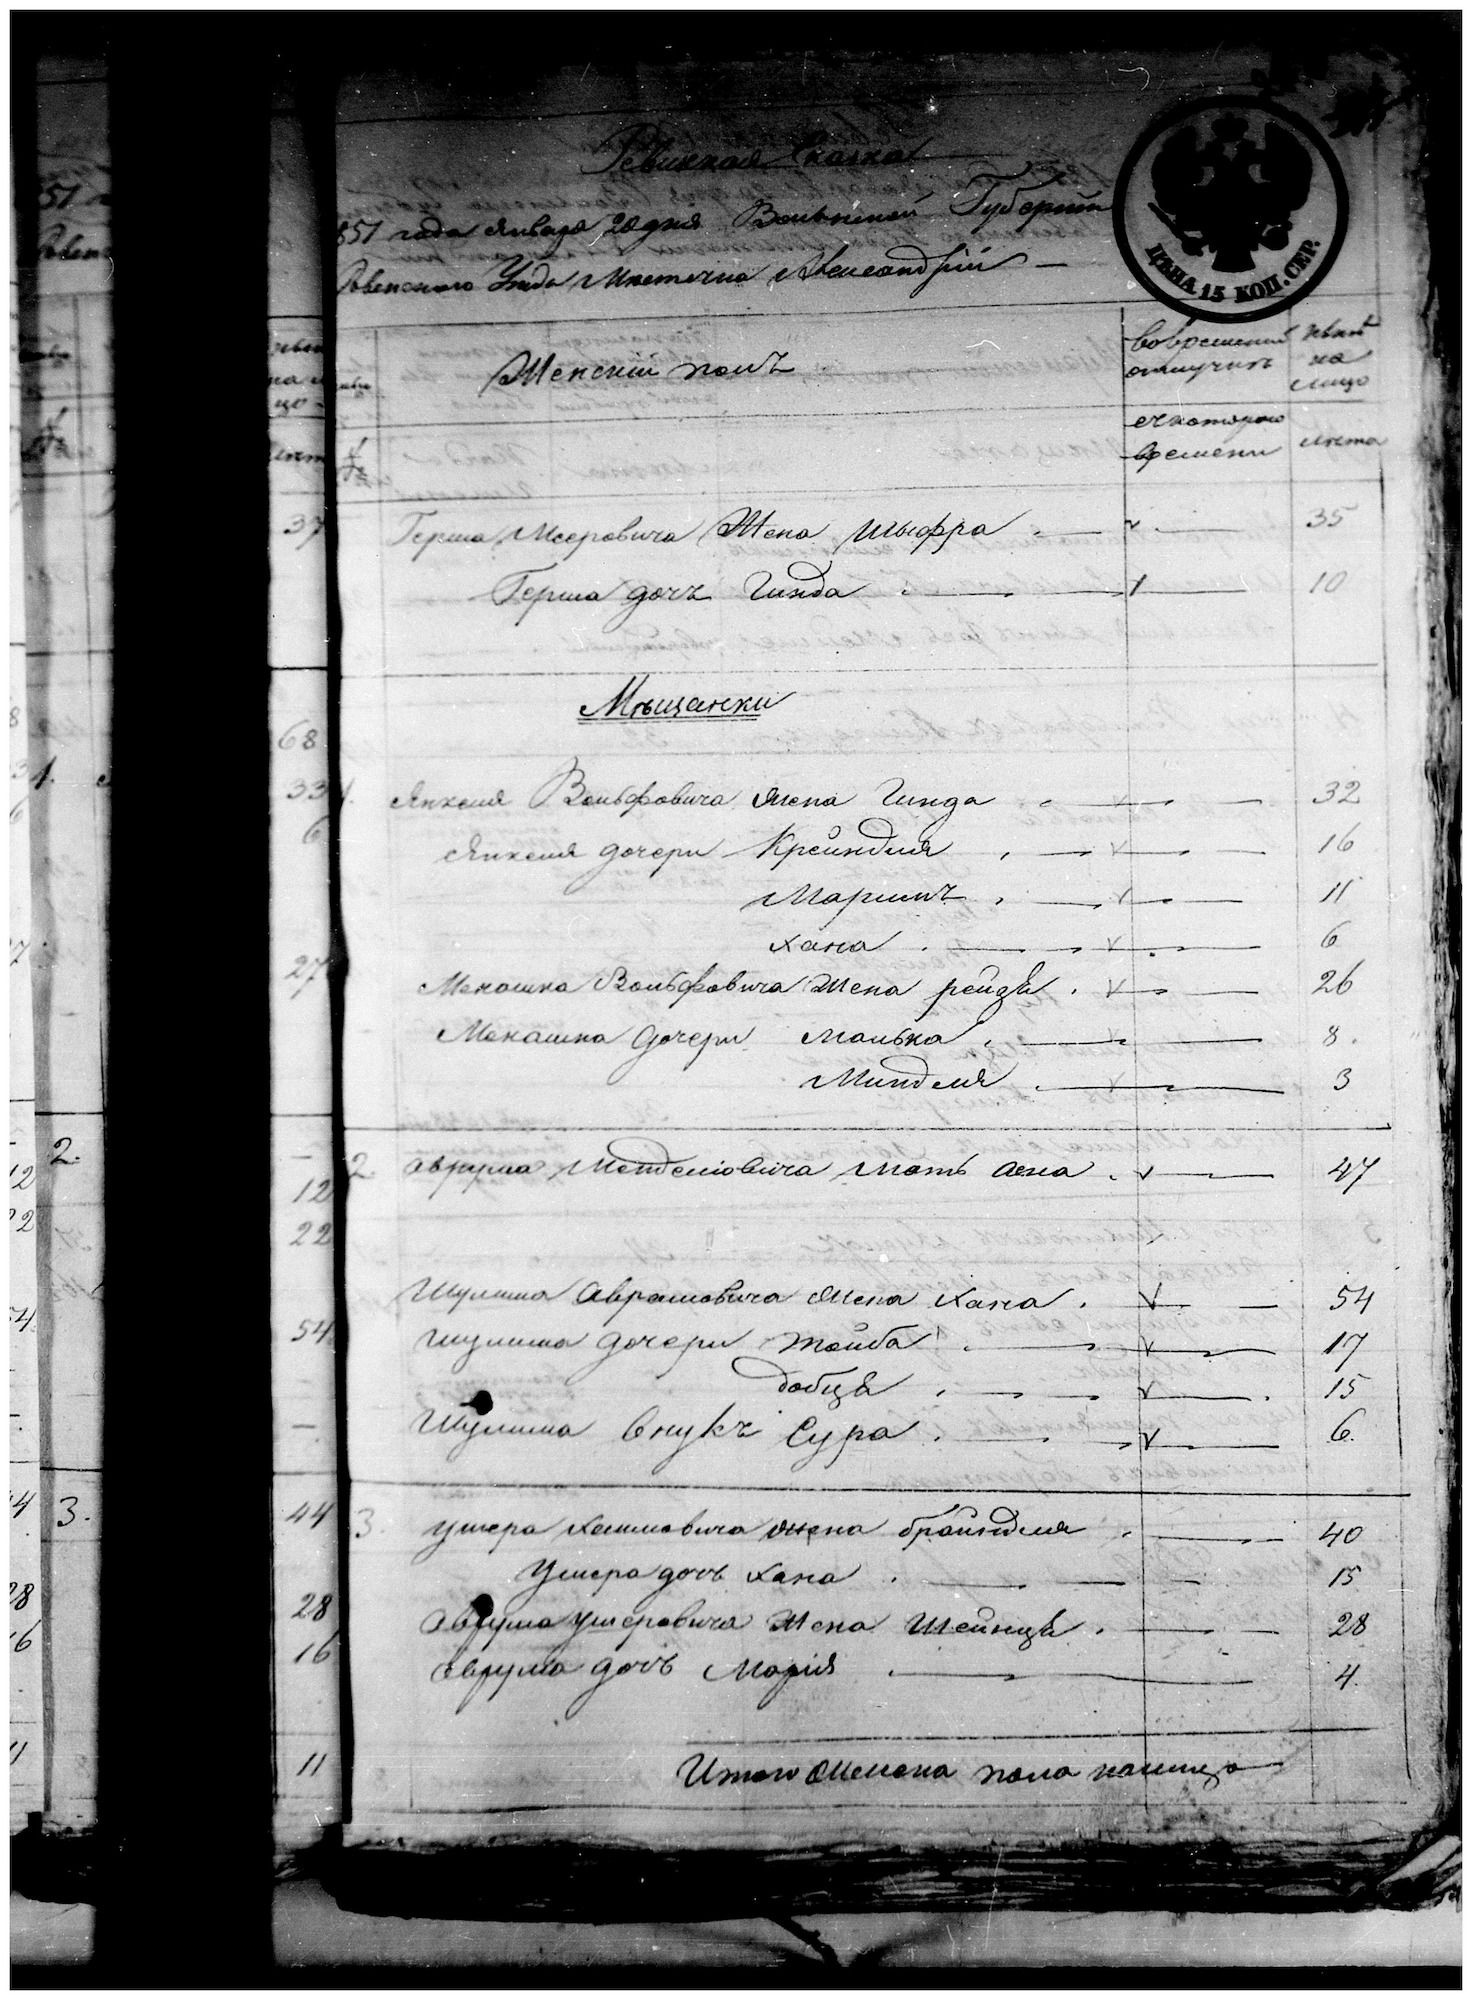 Ревижкая Сказка
851 года Января 20 дня Волынской Губернии
Ровенского Уезда Местечка Александрии
ЦѢНА 15 КОП. СЕР.
Женский полъ
во временной отлучкѣ
нынѣ на лицо
с котораго времени
лѣта
Герша Мееровича Жена Шыфра 35
Герша дочь Гинда 1 10
Мѣщанки
1. Янкеля Вольфовича жена Гинда 32
Янкеля дочери Крейндля 16
Маримъ 11
Хана 6
Менашка Вольфовича Жена рейзя 26
Менашка дочери Малька 8.
Миндля 3
2. Аврума Мендлиовича Мать Асна 47
Шулима Аврамовича Жена Хана 54
Шулима дочери Тойба 17
Добця 15
Шулима Внукъ Сура 6.
3. Ушера Хаимовича жена брайндля 40
Ушера дочь Хана 15
Аврума Ушеровича Жена Шейнця 28
Аврума дочь Марія 4.
Итого Женска пола налицо
37
68
33
6
27
12
22
54
44
28
16
11
2.
3.